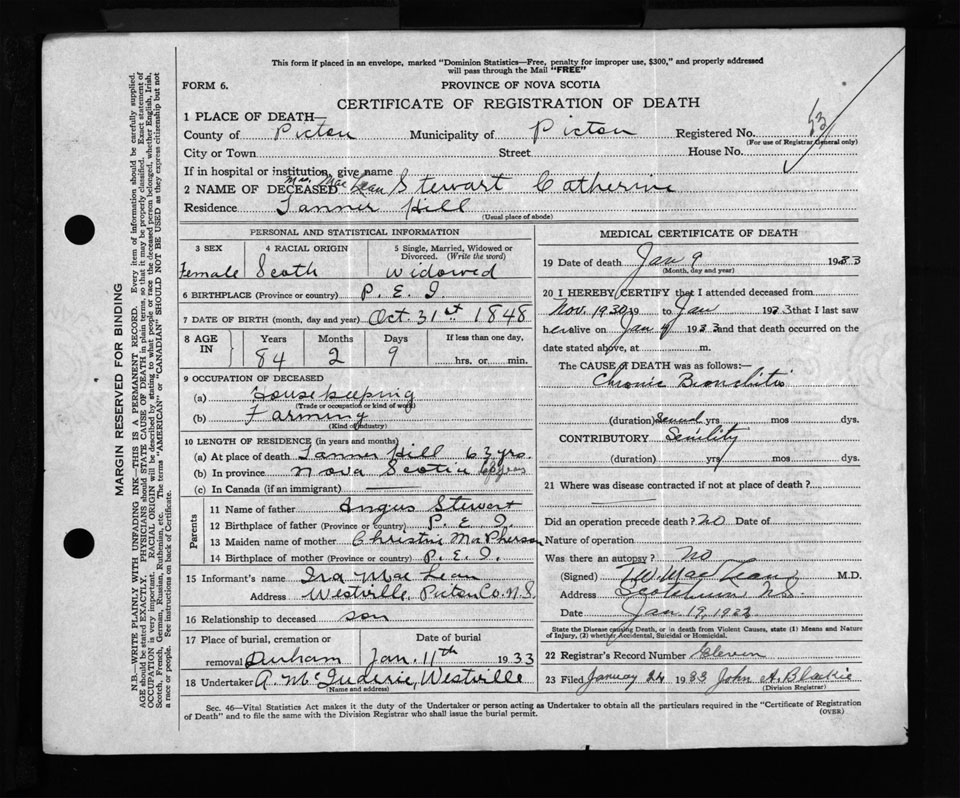 This form if placed in an envelope, marked "Dominion Statistics—Free, penalty for improper use, $300," and properly addressed
will pass through the Mail "FREE"
FORM 6.
PROVINCE OF NOVA SCOTIA
CERTIFICATE OF REGISTRATION OF DEATH
1 PLACE OF DEATH—
County of Pictou Municipality of Pictou Registered No. 53
(For use of Registrar General only)
City or Town Street House No.
If in hospital or institution, give name
Mrs. Mac Lean
2 NAME OF DECEASED Stewart Catherine
Residence Tanner Hill
(Usual place of abode)
PERSONAL AND STATISTICAL INFORMATION
3 SEX 4 RACIAL ORIGIN 5 Single, Married, Widowed or
Divorced. (Write the word)
Female Scoth widowed
6 BIRTHPLACE (Province or country) P. E. I.
7 DATE OF BIRTH (month, day and year) Oct. 31st 1848
8 AGE IN Years Months Days If less than one day,
84 2 9 hrs. or min.
9 OCCUPATION OF DECEASED
(a) Housekeeping
(Trade or occupation or kind of work)
(b) Farming
(Kind of industry)
10 LENGTH OF RESIDENCE (in years and months)
(a) At place of death Tanner Hill 63 yrs.
(b) In province Nova Scotia
(c) In Canada (if an immigrant)
Parents
11 Name of father Angus Stewart
12 Birthplace of father (Province or country) P. E. I.
13 Maiden name of mother Christine MacPherson
14 Birthplace of mother (Province or country) P. E. I.
15 Informant's name Ira MacLean
Address Westville, Pictou Co. N.S.
16 Relationship to deceased son
17 Place of burial, cremation or Date of burial
removal Durham Jan. 11th 1933
18 Undertaker Westville
(Name and address)
MEDICAL CERTIFICATE OF DEATH
19 Date of death Jan 9 1933
(Month, day and year)
20 I HEREBY CERTIFY that I attended deceased from
Nov. 1930 19 to Jan 1933 that I last saw
her alive on Jan 1933 and that death occurred on the
date stated above, at m.
The CAUSE OF DEATH was as follows:—
Chronic Bronchitis
(duration) Several yrs mos dys.
CONTRIBUTORY Senility
(duration) yrs mos dys.
21 Where was disease contracted if not at place of death?
Did an operation precede death? No Date of
Nature of operation
Was there an autopsy? No
(Signed) MacLean M.D.
Address Scotsburn N.S.
Date Jan. 19, 1933
State the Disease causing Death, or in death from Violent Causes, state (1) Means and Nature
of Injury, (2) whether Accidental, Suicidal or Homicidal.
22 Registrar's Record Number Eleven
23 Filed January 24 1933 John A. Blaikie
(Division Registrar)
Sec. 46—Vital Statistics Act makes it the duty of the Undertaker or person acting as Undertaker to obtain all the particulars required in the "Certificate of Registration
of Death" and to file the same with the Division Registrar who shall issue the burial permit.
(OVER)
MARGIN RESERVED FOR BINDING
N.B.—WRITE PLAINLY WITH UNFADING INK—THIS IS A PERMANENT RECORD. Every item of information should be carefully supplied.
AGE should be stated EXACTLY. PHYSICIANS should STATE CAUSE OF DEATH in plain terms, so that it may be properly classified. Exact statement of
OCCUPATION is very important. RACIAL ORIGIN will be described by stating to what people or race the deceased person belonged, whether English, Irish,
Scotch, French, German, Russian, Ruthenian, etc. The terms "AMERICAN" or "CANADIAN" SHOULD NOT BE USED as they express citizenship but not
a race or people. See instructions on back of Certificate.